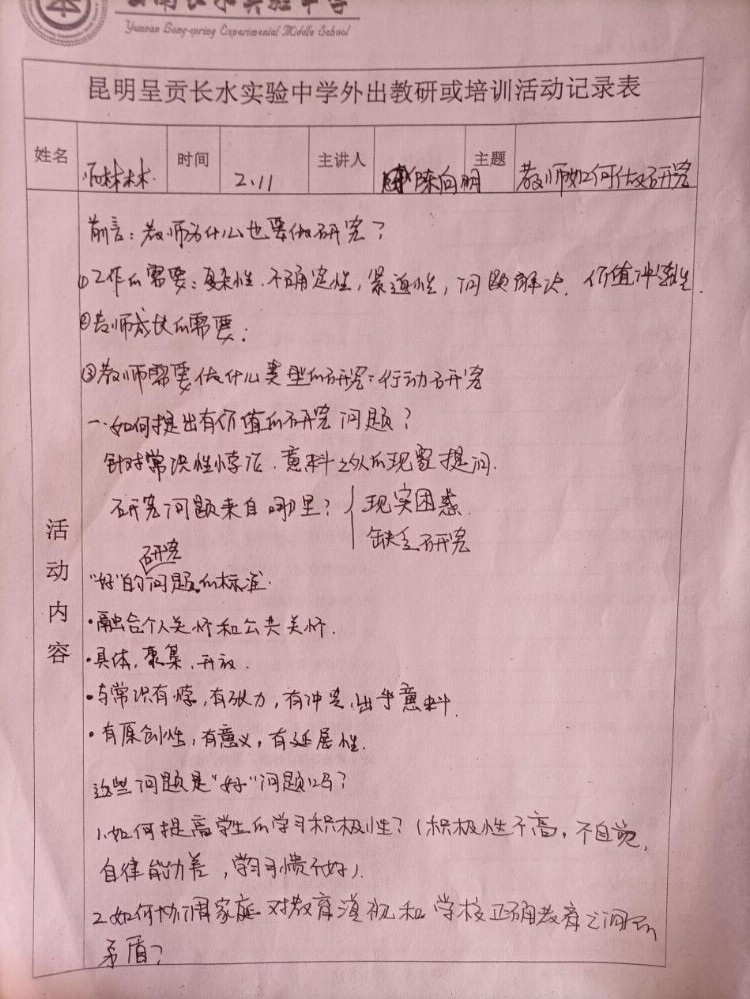 实验中学
Yunnan Long-spring Experimental Middle School
昆明呈贡长水实验中学外出教研或培训活动记录表
姓名 林林 时间 2.11 主讲人 陈向明 主题 教师如何做研究
活动内容
前言:教师为什么也要做研究?
①工作的需要:复杂性、不确定性,紧迫性,问题解决、价值冲突性.
②老师成长的需要:
③教师需要做什么类型的研究:行动研究
一.如何提出有价值的研究问题?
针对常识性悖论、意料之外的现象提问.
研究问题来自哪里?{现实困惑
缺乏研究
"好"的研究问题的标准.
·融合个人关怀和公共关怀.
·具体,聚集,开放.
·与常识有悖,有张力,有冲突,出乎意料.
·有原创性,有意义,有延展性.
这些问题是"好"问题吗?
1.如何提高学生的学习积极性?(积极性不高,不自觉,
自律能力差,学习习惯不好).
2.如何协调家庭对教育漠视和学校正确教育之间的
矛盾?